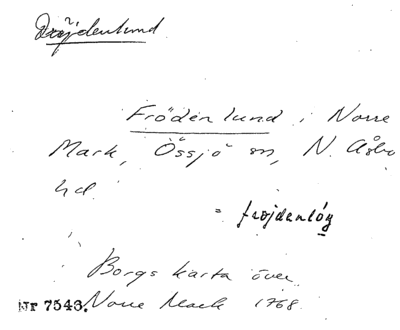 Dröjdenlund
Frödén lund i Norre
Mark, Össjö sn, N. Åsbo
hd.
= frøjdenlóg
Borgs karta över
Nr 7543. Norre Mark 1768.